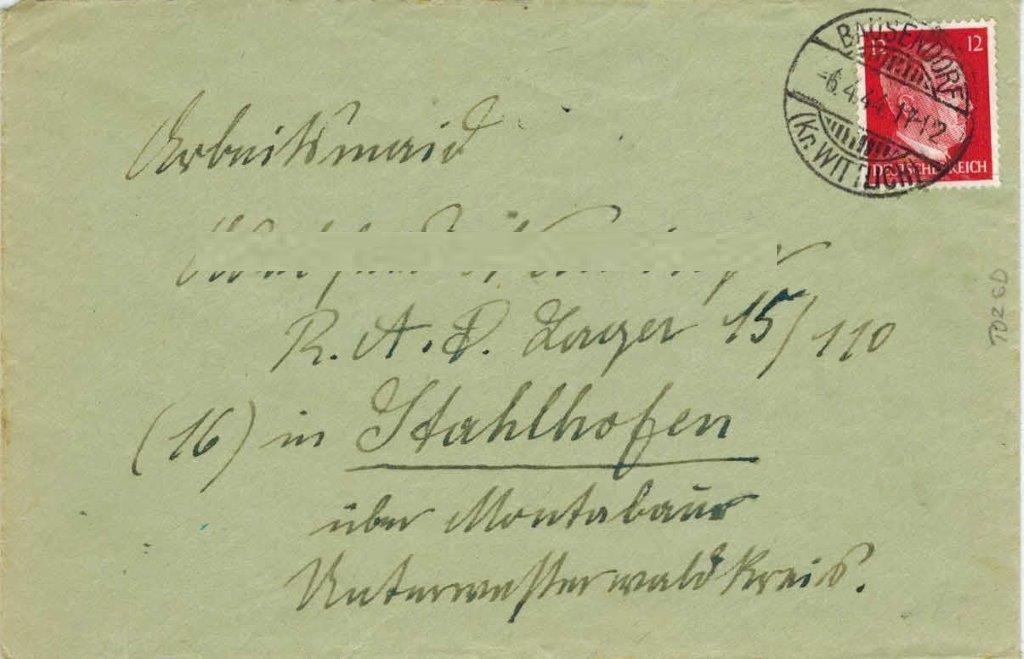 Arbeitsmaid
R.A.D. Lager 15/110
(16) in Stahlhofen
über Montabaur
Unterwesterwaldkreis.
BAUSENDORF
-6.4.44 17-12
(Kr. WITTLICH)
12 12
DEUTSCHES REICH